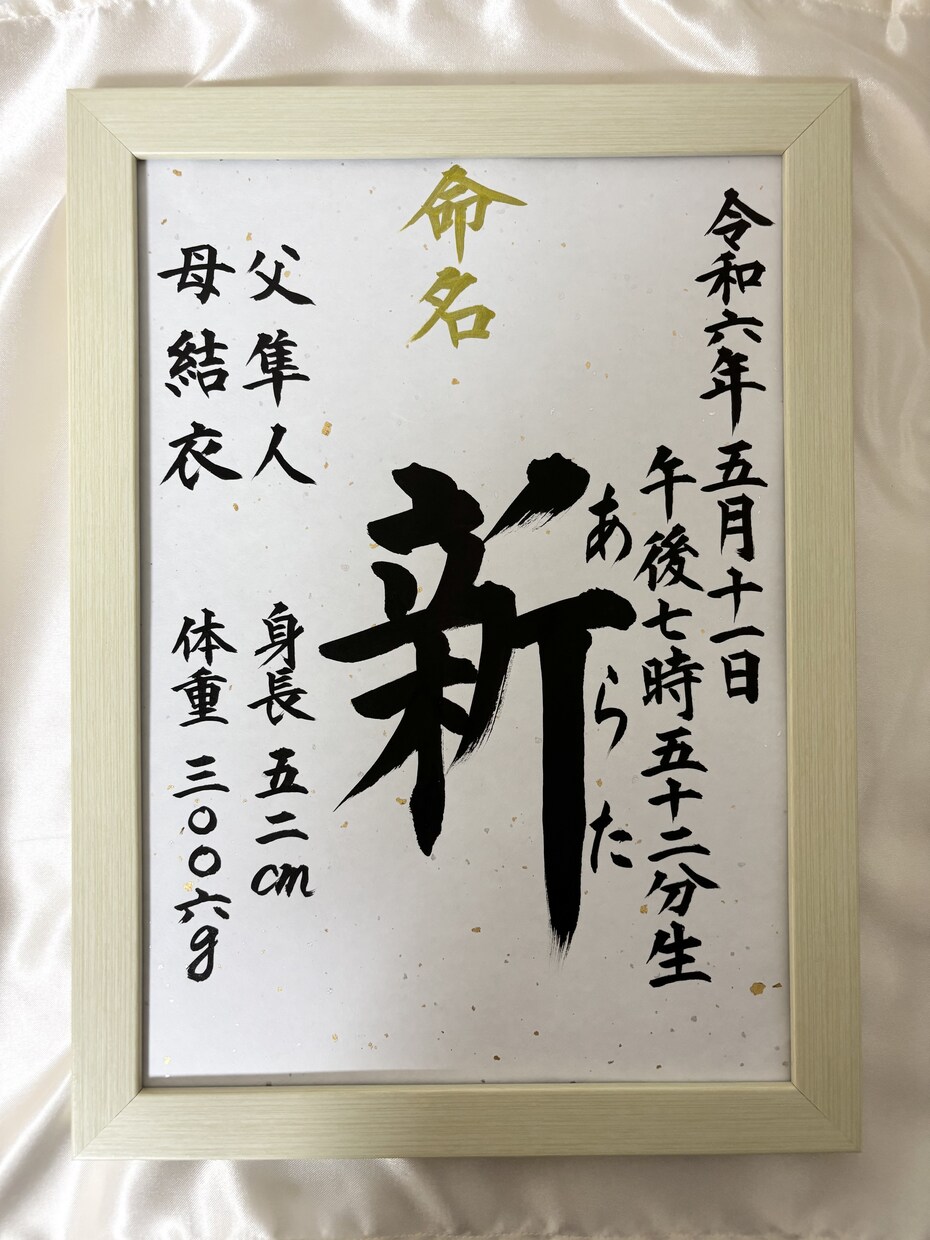 令和六年 五月十一日
午後七時五十二分生
あらた
新
命名
父 隼人
身長 五二cm
母 結衣
体重 三〇〇六g